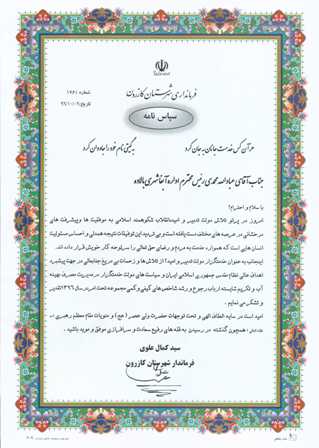 فرمانداری شهرستان کازرون
شماره ۱۷۶۱
سپاس نامه
هر آن کس خدمت جانان به جان کرد
به گیتی نام خود را جاودان کرد
جناب آقای عبدالصمد محمدی رئیس محترم اداره آبفا شهری بالاده
با سلام و احترام؛
امروز در پرتو تلاش دولت تدبیر و امید، انقلاب شکوهمند اسلامی به موفقیت ها و پیشرفت های
درخشانی در عرصه های مختلف دست یافته است و بی تردید این توفیقات نتیجه همدلی و احساس مسئولیت
انسان هایی است که همواره خدمت به مردم و رضای حق تعالی را سرلوحه کار خویش قرار داده اند.
اینجانب به عنوان خدمتگزار دولت تدبیر و امید از تلاش ها و زحمات بی دریغ جنابعالی در جهت پیشبرد
اهداف عالی نظام مقدس جمهوری اسلامی ایران و سیاست های دولت خدمتگزار در مدیریت مصرف بهینه
آب و تکریم شایسته ارباب رجوع و رشد شاخص های کیفی و کمی مجموعه تحت امر در سال ۱۳۹۶ تقدیر
و تشکر می نمایم.
امید است در سایه الطاف الهی و تحت توجهات حضرت ولی عصر (عج) و منویات مقام معظم رهبری
همچون گذشته در رسیدن به قله های رفیع سعادت و سرافرازی موفق و موید باشید.
سید کمال علوی
فرماندار شهرستان کازرون